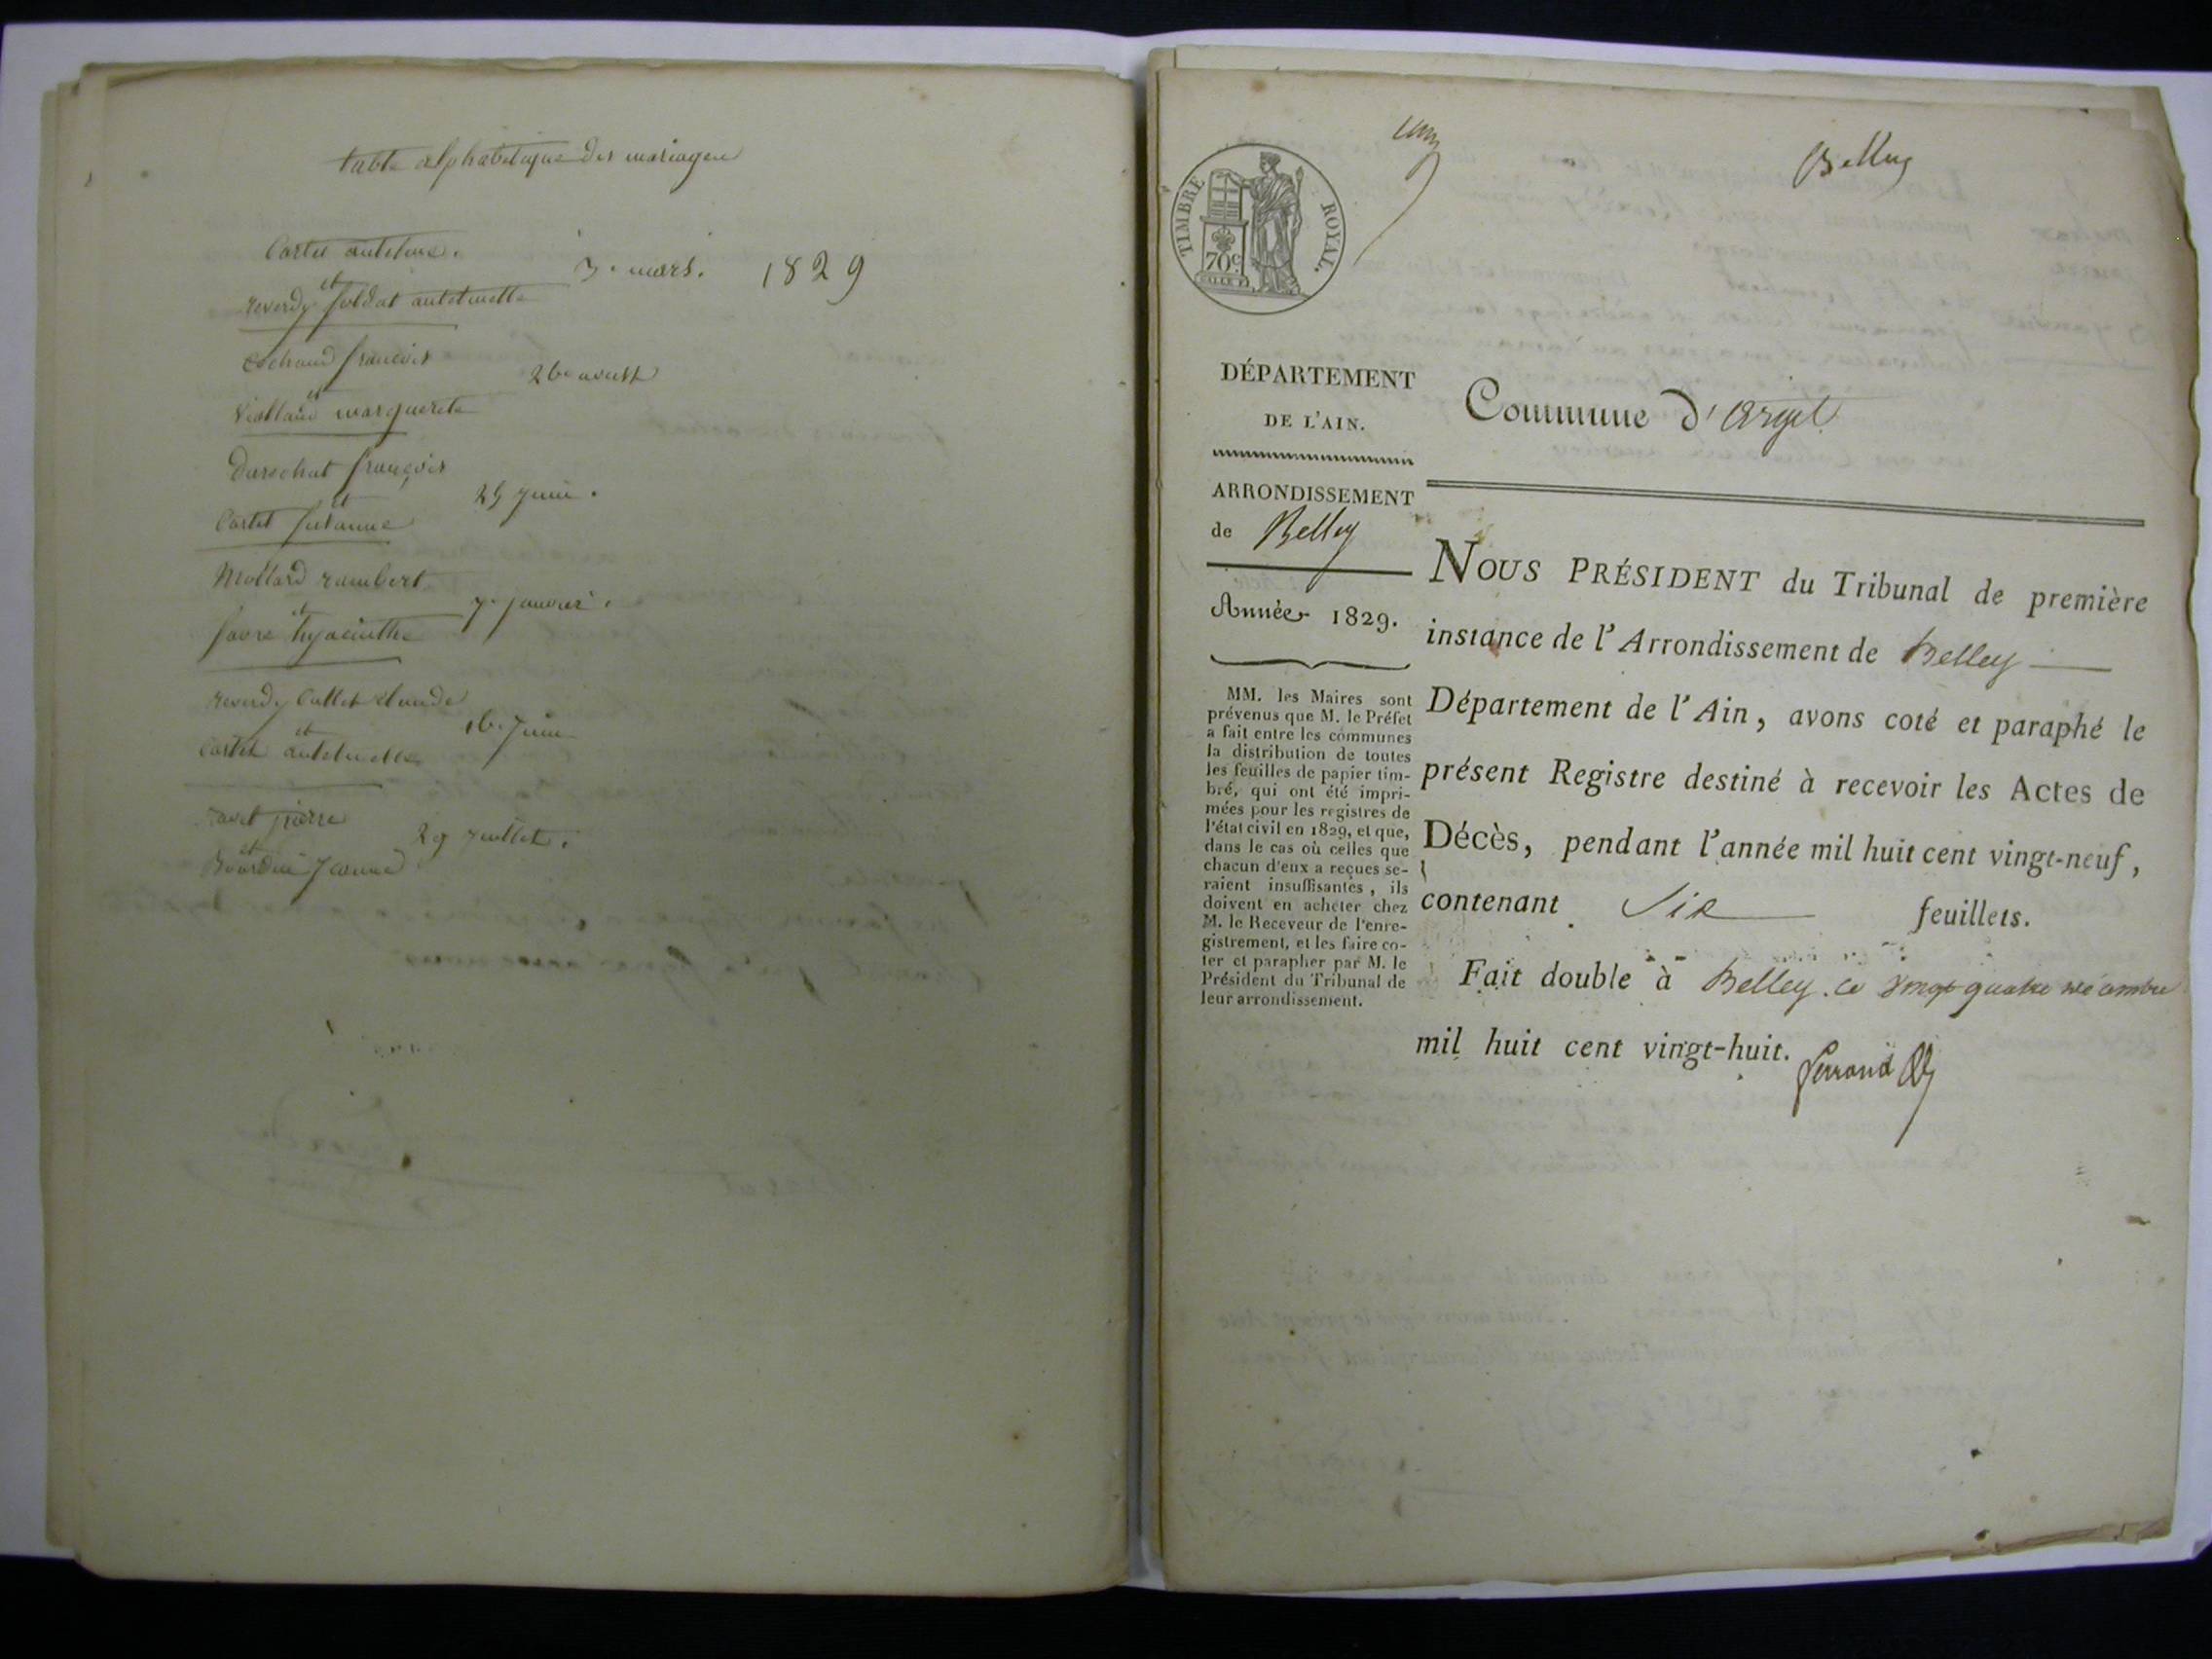 table alphabetique des mariages
Cartet antelme.
et
3. mars. 1829
reverdy soldat antelmette
Cochaud françois
et
26 avril
Viollaud marguerite
Durochat françois
et
25 juin.
Cartet suzanne
Mollard rambert
et
7. janvier.
favre hyacinthe
reverdy Collet claude
et
16. juin
Cartet antelmette
ravet pierre
et
29 juillet.
Bourdin jeanne
Belley
TIMBRE ROYAL.
70 C
DÉPARTEMENT
DE L'AIN.
ARRONDISSEMENT
de Belley
Année 1829.
MM. les Maires sont
prévenus que M. le Préfet
a fait entre les communes
la distribution de toutes
les feuilles de papier tim-
bré, qui ont été impri-
mées pour les registres de
l'état civil en 1829, et que,
dans le cas où celles que
chacun d'eux a reçues se-
raient insuffisantes, ils
doivent en acheter chez
M. le Receveur de l'enre-
gistrement, et les faire co-
ter et parapher par M. le
Président du Tribunal de
leur arrondissement.
Commune d'argil
NOUS PRÉSIDENT du Tribunal de première
instance de l'Arrondissement de Belley
Département de l'Ain, avons coté et paraphé le
présent Registre destiné à recevoir les Actes de
Décès, pendant l'année mil huit cent vingt-neuf,
contenant Six feuillets.
Fait double à Belley. ce vingt quatre décembre
mil huit cent vingt-huit.